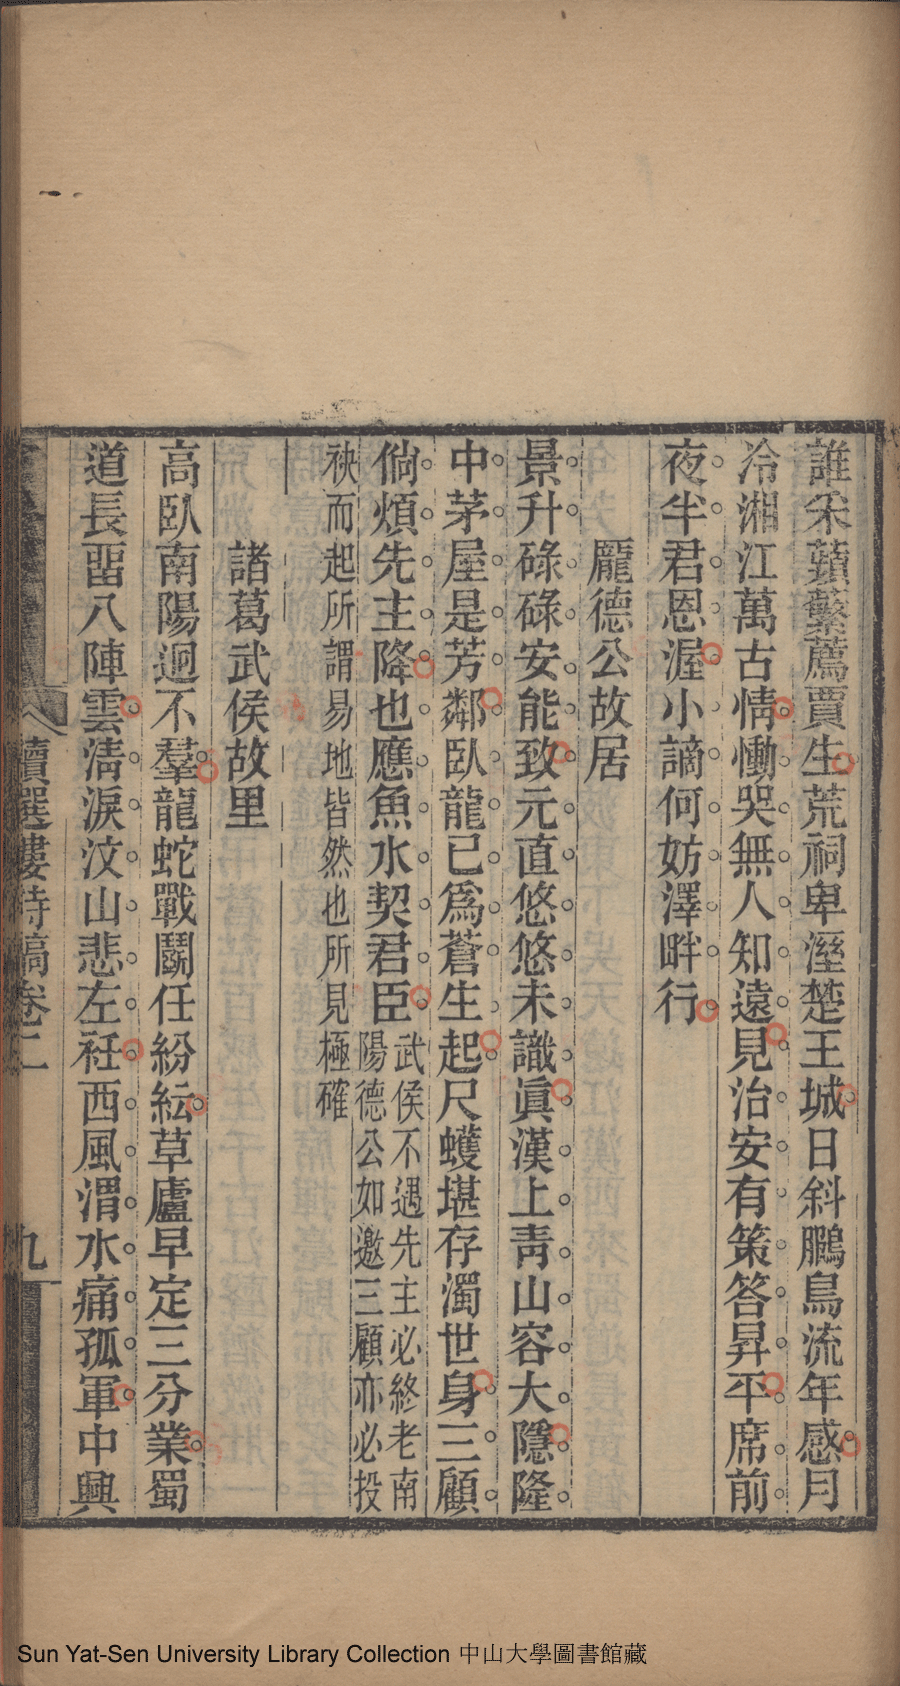 誰采蘋蘩薦賈生荒祠卑溼楚王城日斜鵬鳥流年感月
冷湘江萬古情慟哭無人知遠見治安有策答昇平席前
夜半君恩渥小謫何妨澤畔行
龐德公故居
景升碌碌安能致元直悠悠未識眞漢上靑山容大隱隆
中茅屋是芳鄰臥龍已爲蒼生起尺蠖堪存濁世身三顧
倘煩先主降也應魚水契君臣
武侯不遇先主必終老南
陽德公如邀三顧亦必投
袂而起所謂易地皆然也所見極確
諸葛武侯故里
高臥南陽迥不羣龍蛇戰鬭任紛紜草廬早定三分業蜀
道長畱八陣雲淸淚汶山悲左衽西風渭水痛孤軍中興
續選樓詩稿卷二
九
Sun Yat-Sen University Library Collection 中山大學圖書館藏